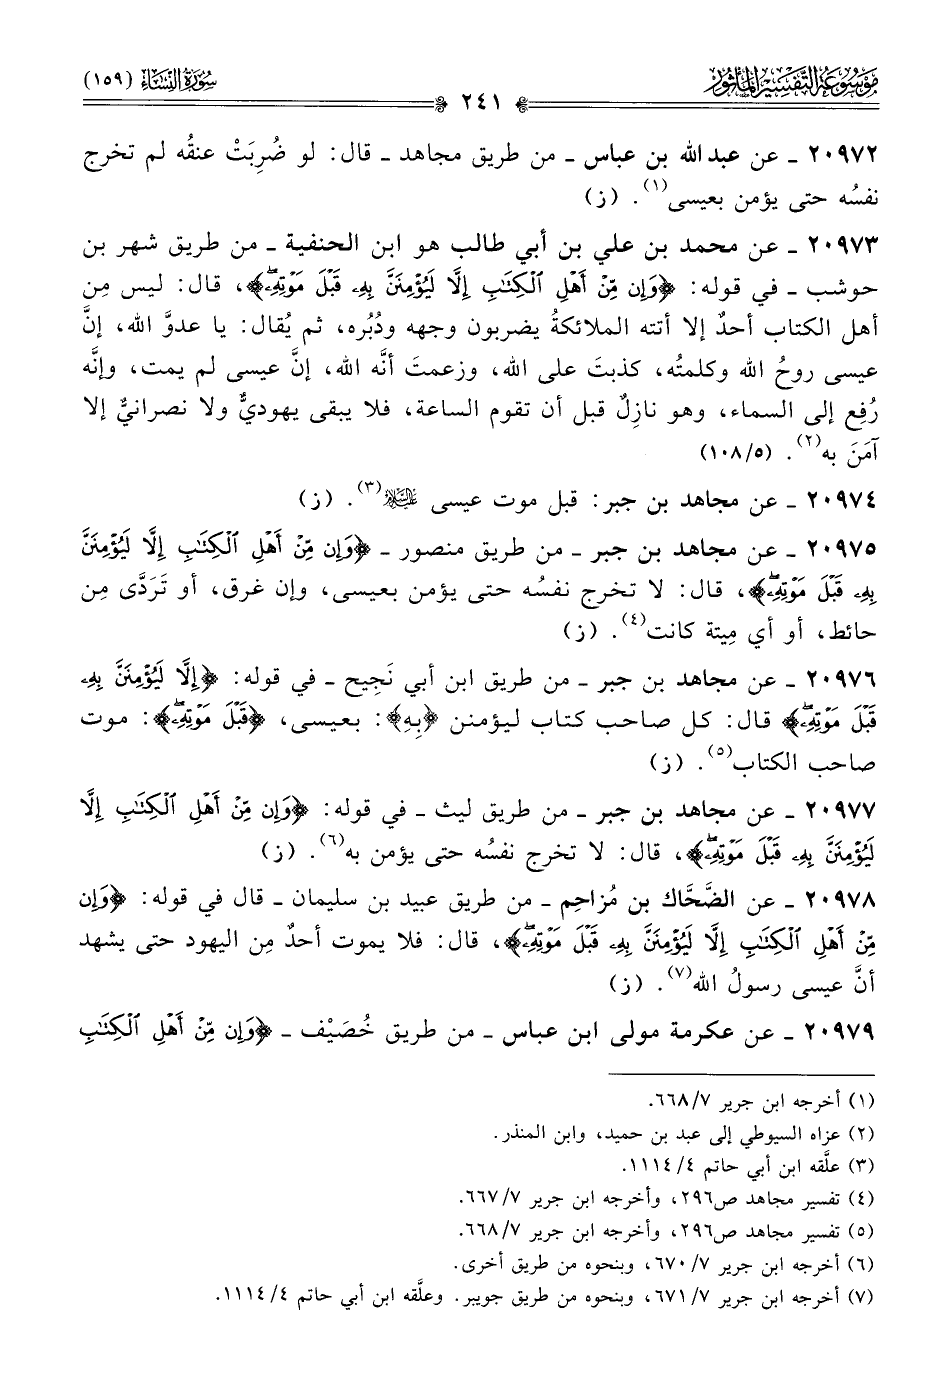 مَوْسُوعَةُ التَّفْسِيرِ المَأْثُورِ
سُورَةُ النِّسَاءِ (١٥٩)
٢٤١
٢٠٩٧٢ ـ عن عبد الله بن عباس ـ من طريق مجاهد ـ قال: لو ضُرِبَتْ عنقُه لم تخرج
نفسُه حتى يؤمن بعيسى(١). (ز)
٢٠٩٧٣ ـ عن محمد بن علي بن أبي طالب هو ابن الحنفية ـ من طريق شهر بن
حوشب ـ في قوله: ﴿وَإِن مِّنْ أَهْلِ ٱلْكِتَٰبِ إِلَّا لَيُؤْمِنَنَّ بِهِۦ قَبْلَ مَوْتِهِۦۖ﴾، قال: ليس مِن
أهل الكتاب أحدٌ إلا أتته الملائكةُ يضربون وجهه ودُبُره، ثم يُقال: يا عدوَّ الله، إنَّ
عيسى روحُ الله وكلمتُه، كذبتَ على الله، وزعمتَ أنَّه الله، إنَّ عيسى لم يمت، وإنَّه
رُفِع إلى السماء، وهو نازِلٌ قبل أن تقوم الساعة، فلا يبقى يهوديٌّ ولا نصرانيٌّ إلا
آمَنَ به(٢). (١٠٨/٥)
٢٠٩٧٤ ـ عن مجاهد بن جبر: قبل موت عيسى عليه السلام(٣). (ز)
٢٠٩٧٥ ـ عن مجاهد بن جبر ـ من طريق منصور ـ ﴿وَإِن مِّنْ أَهْلِ ٱلْكِتَٰبِ إِلَّا لَيُؤْمِنَنَّ
بِهِۦ قَبْلَ مَوْتِهِۦۖ﴾، قال: لا تخرج نفسُه حتى يؤمن بعيسى، وإن غرق، أو تَرَدَّى مِن
حائط، أو أي مِيتة كانت(٤). (ز)
٢٠٩٧٦ ـ عن مجاهد بن جبر ـ من طريق ابن أبي نَجِيح ـ في قوله: ﴿إِلَّا لَيُؤْمِنَنَّ بِهِۦ
قَبْلَ مَوْتِهِۦۖ﴾ قال: كل صاحب كتاب ليؤمنن ﴿بِهِ﴾: بعيسى، ﴿قَبْلَ مَوْتِهِۦۖ﴾: موت
صاحب الكتاب(٥). (ز)
٢٠٩٧٧ ـ عن مجاهد بن جبر ـ من طريق ليث ـ في قوله: ﴿وَإِن مِّنْ أَهْلِ ٱلْكِتَٰبِ إِلَّا
لَيُؤْمِنَنَّ بِهِۦ قَبْلَ مَوْتِهِۦۖ﴾، قال: لا تخرج نفسُه حتى يؤمن به(٦). (ز)
٢٠٩٧٨ ـ عن الضَّحَّاك بن مُزاحِم ـ من طريق عبيد بن سليمان ـ قال في قوله: ﴿وَإِن
مِّنْ أَهْلِ ٱلْكِتَٰبِ إِلَّا لَيُؤْمِنَنَّ بِهِۦ قَبْلَ مَوْتِهِۦۖ﴾، قال: فلا يموت أحدٌ مِن اليهود حتى يشهد
أنَّ عيسى رسولُ الله(٧). (ز)
٢٠٩٧٩ ـ عن عكرمة مولى ابن عباس ـ من طريق خُصَيْف ـ ﴿وَإِن مِّنْ أَهْلِ ٱلْكِتَٰبِ
(١) أخرجه ابن جرير ٦٦٨/٧.
(٢) عزاه السيوطي إلى عبد بن حميد، وابن المنذر.
(٣) علَّقه ابن أبي حاتم ١١١٤/٤.
(٤) تفسير مجاهد ص٢٩٦، وأخرجه ابن جرير ٦٦٧/٧.
(٥) تفسير مجاهد ص٢٩٦، وأخرجه ابن جرير ٦٦٨/٧.
(٦) أخرجه ابن جرير ٦٧٠/٧، وبنحوه من طريق أخرى.
(٧) أخرجه ابن جرير ٦٧١/٧، وبنحوه من طريق جويبر. وعلَّقه ابن أبي حاتم ١١١٤/٤.